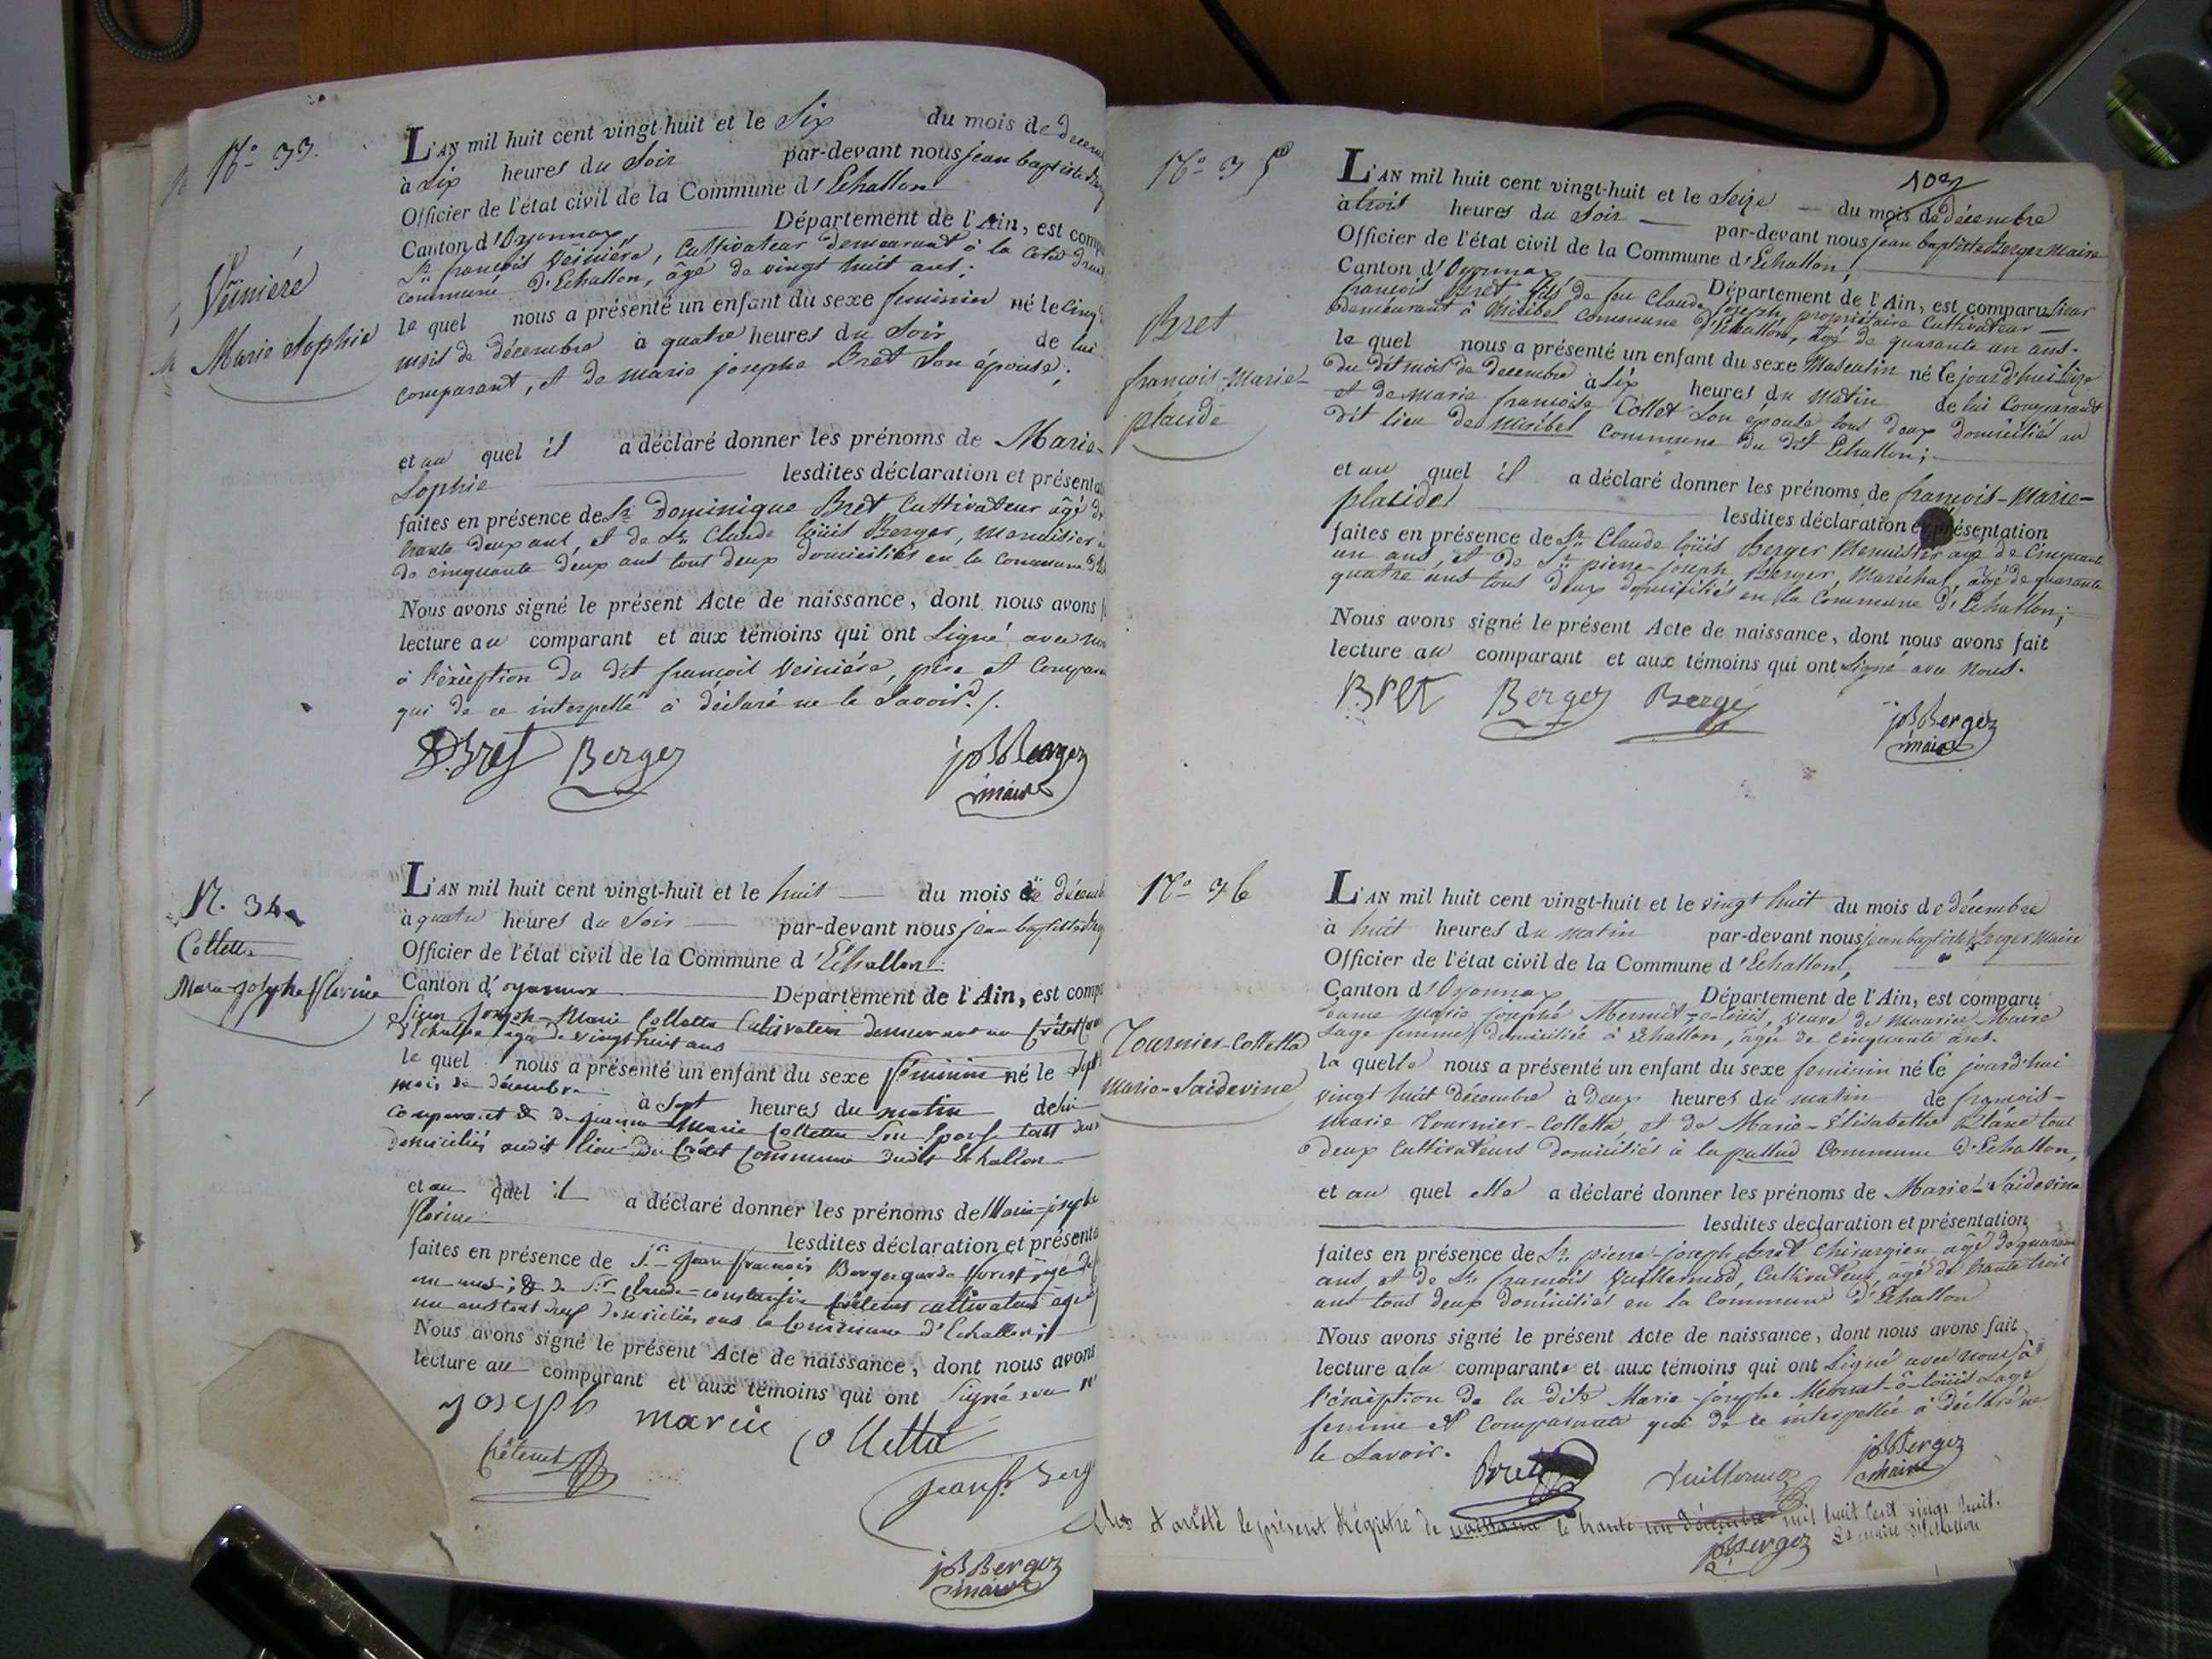 N.o 33.
Veiniére
Marie Sophie
L'AN mil huit cent vingt-huit et le Six du mois de
à Six heures du Soir par-devant nous jean baptiste
Officier de l'état civil de la Commune d'Echallon
Canton d'Oyonnax Département de l'Ain, est
Sr. françois Veiniére, Cultivateur demeurant à la
commune d'Echallon, âgé de vingt huit ans;
le quel nous a présenté un enfant du sexe feminin né le cinq
mois de décembre à quatre heures du Soir de lui
comparant, et de marie josephe Bret Son épouse;
et au quel il a déclaré donner les prénoms de Marie-
Sophie lesdites déclaration et
faites en présence de Sr. Dominique Bret Cultivateur âgé de
trente deux ans, et de Sr. Claude loüis Berger, Menuisier
de cinquante deux ans tous deux domiciliés en la commune
Nous avons signé le présent Acte de naissance, dont nous avons
lecture au comparant et aux témoins qui ont Signé avec
à l'éxception du dit françois Veiniére, père et
qui de ce interpellé à déclaré ne le Savoir./.
D. Bret Berger jB Berger
maire
N. 34
Colletta
Marie-josephe florine
L'AN mil huit cent vingt-huit et le huit du mois de
à quatre heures du Soir par-devant nous jean baptiste
Officier de l'état civil de la Commune d'Echallon
Canton d'oyonnax Département de l'Ain, est
Sieur Joseph-Marie Colletta Cultivateur demeurant au Crétet
d'Echallon âgé de vingt huit ans
le quel nous a présenté un enfant du sexe féminin né le sept
mois de décembre à Sept heures du matin de lui
comparant & de marie Colletta Son Epouse tout deux
domiciliés audit lieu du Crétet Commune dudit Echallon
et au quel il a déclaré donner les prénoms de Marie-josephe
florine lesdites déclaration et
faites en présence de Sr. jean françois Berger garde forest
un ans; & de Sr. Claude-constantin Crétenet cultivateur âgé
un ans tout deux domiciliés en la Commune d'Echallon
Nous avons signé le présent Acte de naissance, dont nous avons
lecture au comparant et aux témoins qui ont Signé
joseph marie colletta
Crétenet
jean fs.
jB Berger
maire
102
N.o 35
Bret
françois-Marie-
placide
L'AN mil huit cent vingt-huit et le Seize du mois de décembre
à trois heures du Soir par-devant nous jean baptiste Berger Maire
Officier de l'état civil de la Commune d'Echallon,
Canton d'Oyonnax, Département de l'Ain, est comparu Sieur
françois Bret fils de feu Claude joseph, propriétaire Cultivateur
demeurant à Miribel commune d'Echallon, âgé de quarante un ans.
le quel nous a présenté un enfant du sexe Masculin né le jourd'hui Seize
du dit mois de decembre à Six heures du Matin de lui Comparant
et de marie françoise Collet Son épouse tous deux domiciliés au
dit lieu de Miribel commune du dit Echallon;
et au quel il a déclaré donner les prénoms de françois-Marie-
placide lesdites déclaration et présentation
faites en présence de Sr. Claude loüis Berger Menuisier âgé de Cinquante
un ans et de Sr. pierre joseph Berger, Maréchal, âgé de quarante
quatre ans tous deux domiciliés en la Commune d'Echallon;
Nous avons signé le présent Acte de naissance, dont nous avons fait
lecture au comparant et aux témoins qui ont Signé avec Nous.
Bret Berger Berge jB Berger
maire
N.o 36
Tournier-Colletta
Marie-Saidevine
L'AN mil huit cent vingt-huit et le vingt huit du mois de décembre
à huit heures du matin par-devant nous jean baptiste Berger Maire
Officier de l'état civil de la Commune d'Echallon,
Canton d'Oyonnax Département de l'Ain, est comparu
dame Marie josephe Mermet-o-loüis, veuve de Maurice Maire
Sage femme, domiciliée à Echallon, âgée de Cinquante ans.
la quelle nous a présenté un enfant du sexe feminin né le jourd'hui
vingt huit décembre à deux heures du matin de françois-
Marie Tournier-Colletta, et de Marie-Elisabethe Pláne tous
deux Cultivateurs domiciliés à la pallud Commune d'Echallon,
et au quel elle a déclaré donner les prénoms de Marie-Saidevine
lesdites déclaration et présentation
faites en présence de Sr. pierre-joseph Bret Chirurgien âgé de
ans, et de Sr. françois Vuillermod, Cultivateur, âgé de trente trois
ans tous deux domiciliés en la Commune d'Echallon
Nous avons signé le présent Acte de naissance, dont nous avons fait
lecture à la comparante et aux témoins qui ont Signé avec nous, à
l'éxception de la dite Marie-josephe Mermet-o-loüis Sage
femme et Comparante qui de ce interpellée à déclaré ne
le Savoir.
Bret Vuillermoz jB Berger
maire
Clos et arrêté le présent Régistre de naissance le trente un décembre mil huit Cent vingt huit.
jB Berger Le maire d'Echallon